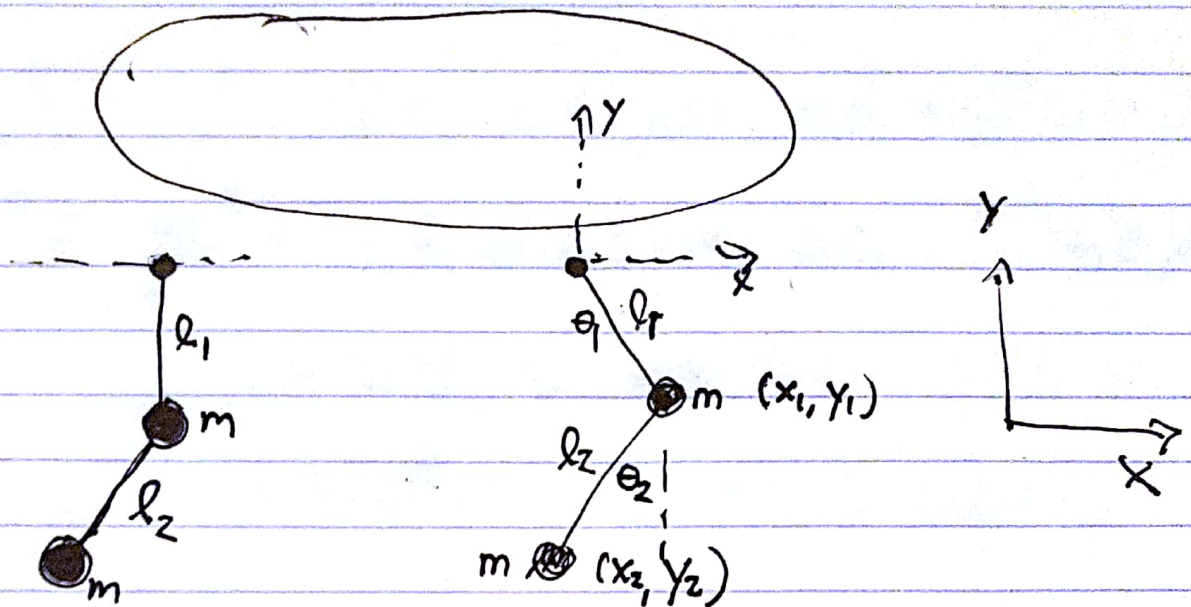 Y
x
l₁
θ₁ l₁
m
m (x₁, y₁)
l₂
m
l₂ θ₂
m (x₂, y₂)
Y
X